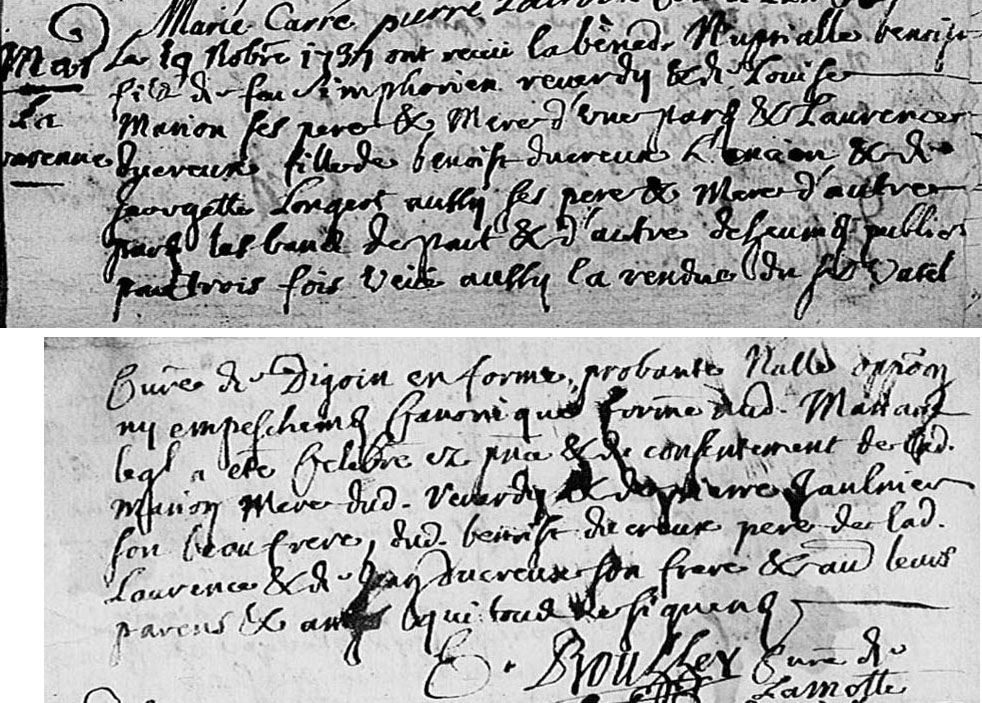 Marie Carré pierre
Mar Le 19 Nobre 1737 ont receu la bèned. Nuptialle benoist
fils de feu Simphorien reverdy & de Louise
La Marion ses pere & Mere d'vne part & Laurence
varenne ducreux fille de benoist ducreux L'encien & de
georgette Longerot aussy ses pere & Mere d'autre
part les bans de part & d'autre desüemt publies
par trois fois Veüe aussy la rendue du sr Vatel
Curé de Digoin en forme probante Nulle oppoon
ny empeschemt Canonique formé aud. Mariage
leql a été Celebré ez pnce & de consentement de lad.
Marion Mere dud. reverdy & de pierre Gaulnier
son beaufrere, dud. benoist ducreux pere de lad.
Laurence & de Jean Ducreux son frere & au leurs
parens & amis qui tous ne signent
E. Brousser Curé de
Lamotte